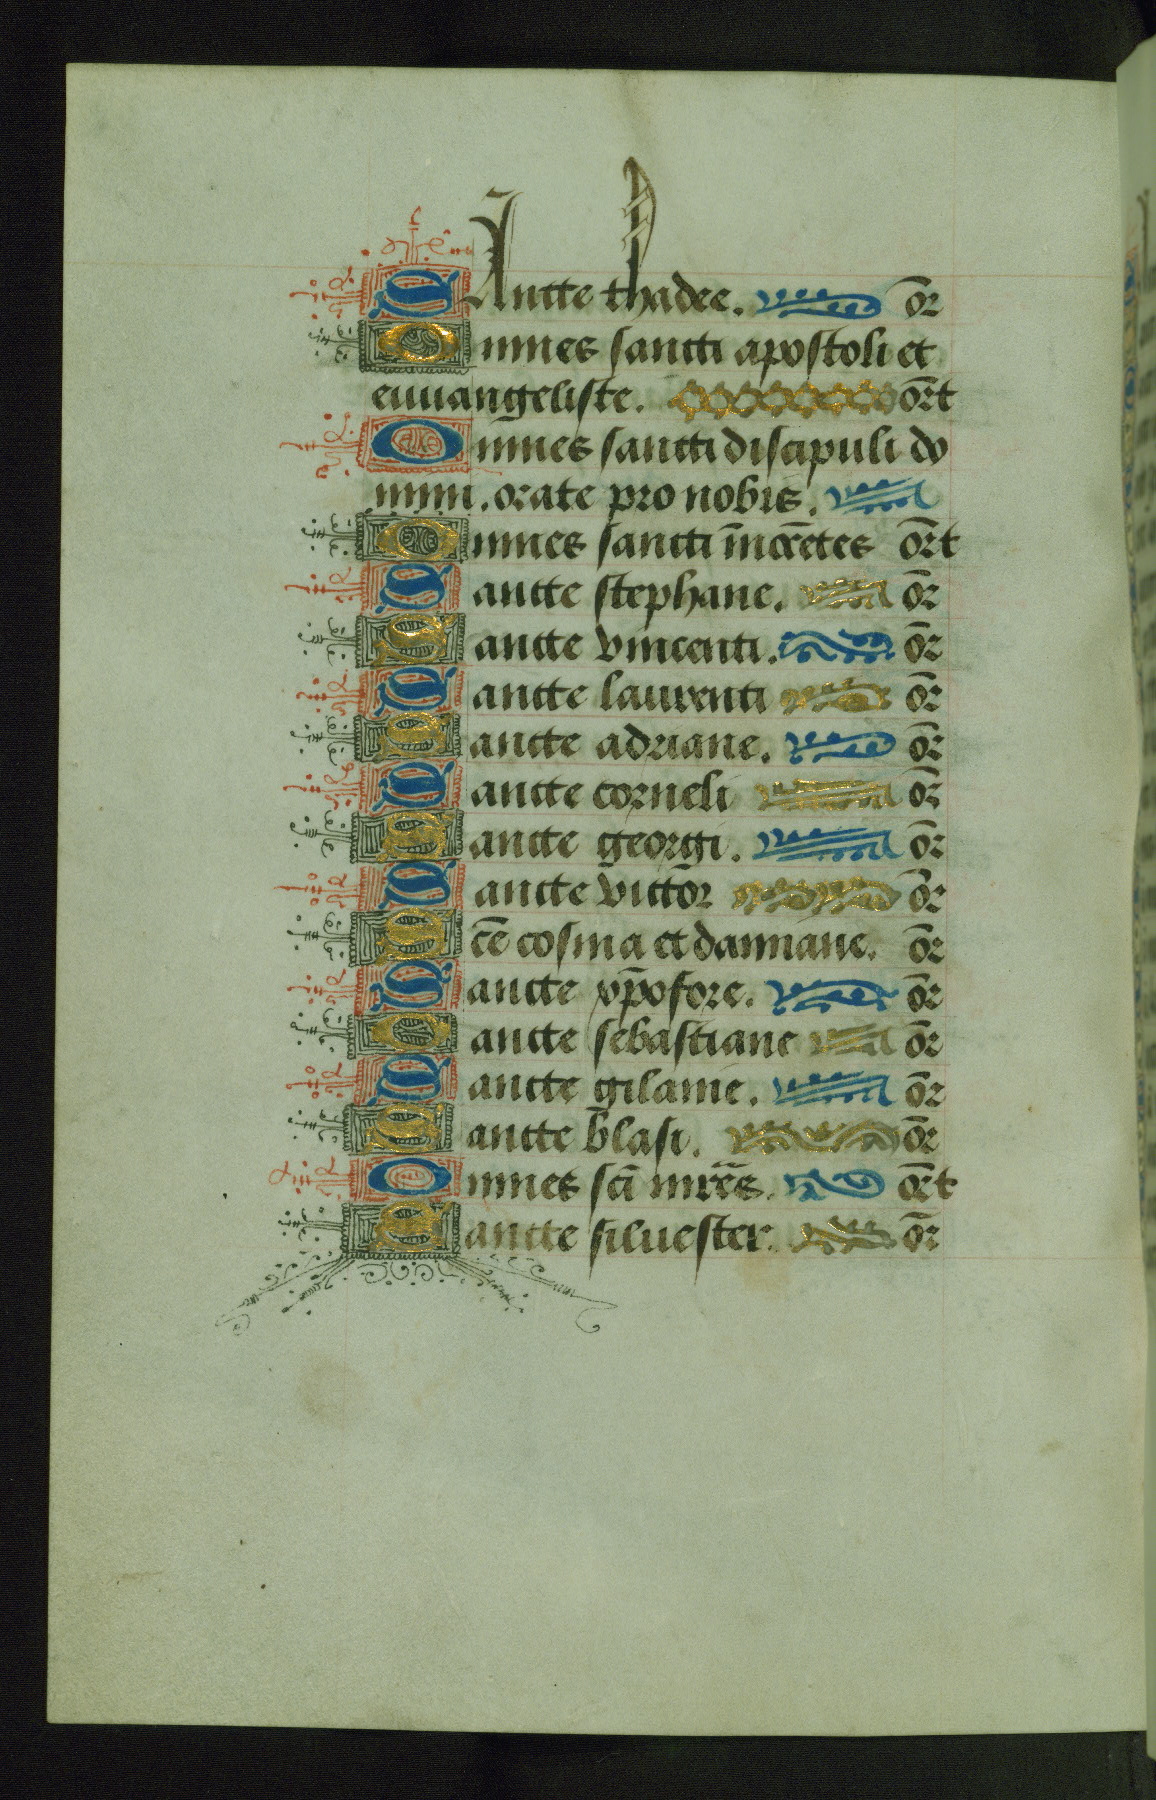 SAncte thadee. or̄
Omnes sancti apostoli et
euuangeliste. or̄t
Omnes sancti discipuli do
mini. orate pro nobis.
Omnes sancti īnocētes or̄t
Sancte stephane. or̄
Sancte vincenti. or̄
Sancte laurenti or̄
Sancte adriane. or̄
Sancte corneli or̄
Sancte georgi. or̄
Sancte victor or̄
Scē cosma et damiane. or̄
Sancte xp̄ofore. or̄
Sancte sebastiane or̄
Sancte gilaine. or̄
Sancte blasi. or̄
Omnes scī mr̄es. or̄t
Sancte siluester. or̄